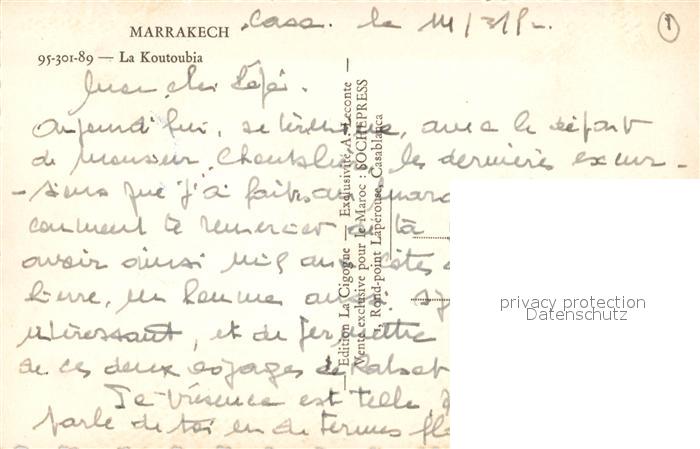 MARRAKECH
95-301-89 — La Koutoubia
Casa. le 14/3/
1
Mon cher
Aujourd'hui, se termine, avec le départ
de Monsieur les dernières excur-
-sions que j'ai faites au maroc
comment te remercier de t'a
avoir ainsi mis aux côtés
un homme aussi
intéressant, et de permettre
de ces deux voyages de Rabat
Ta présence est telle,
parle de toi en de termes
— Edition La Cigogne — Exclusivité A. Leconte —
Vente exclusive pour le Maroc : SOCHEPRESS
1, Rond-point Lapérouse, Casablanca
privacy protection
Datenschutz